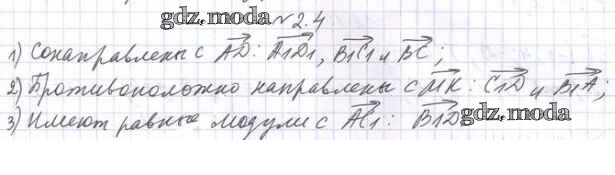 gdz.moda №2.4
1) Сонаправлены с AD: A1D1, B1C1 и BC;
2) Противоположно направлены с MK: C1D и B1A;
3) Имеют равные модули с AC1: B1D gdz.moda